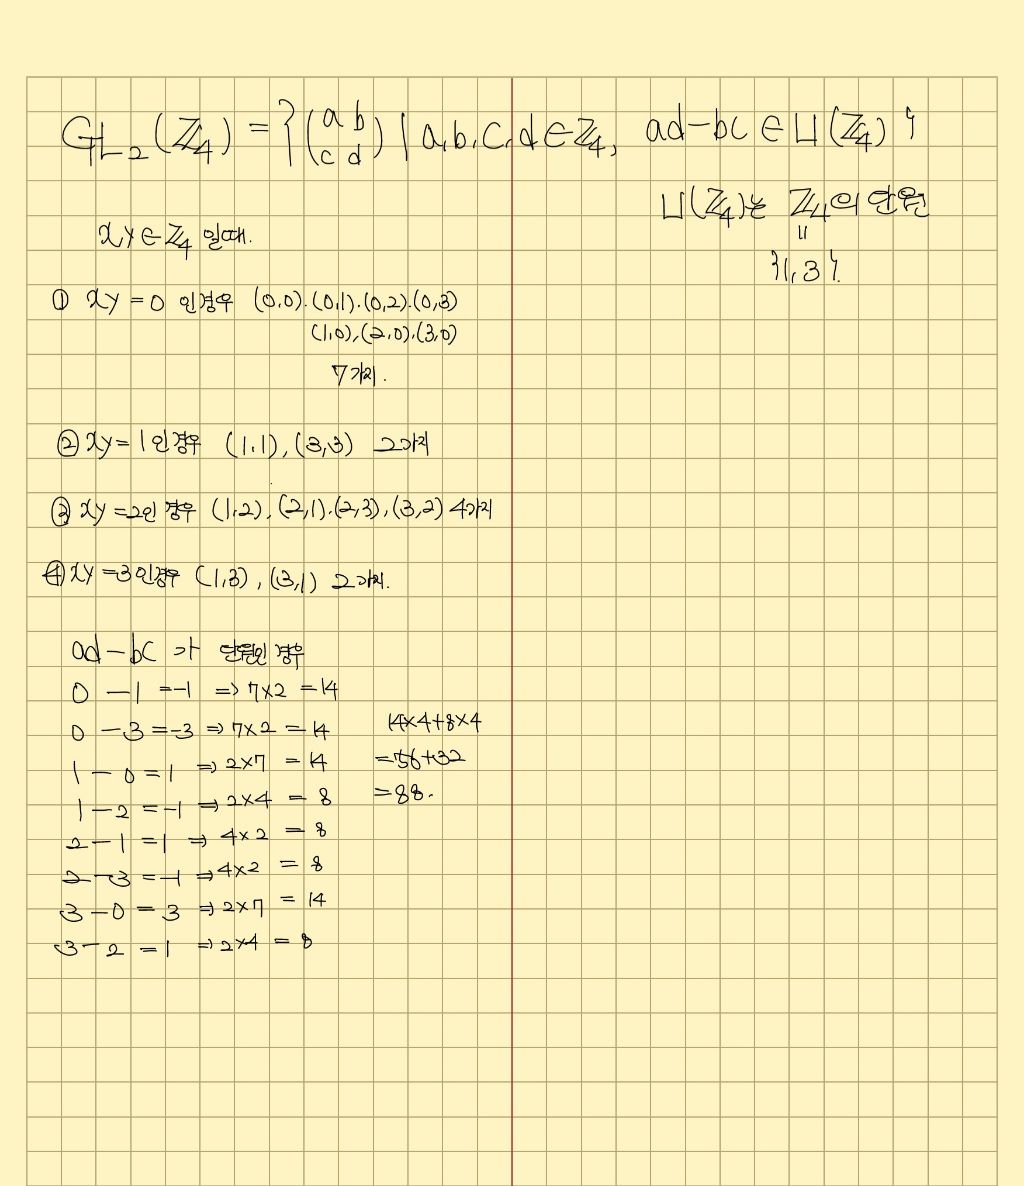 GL₂(ℤ₄) = {(a b c d) | a,b,c,d∈ℤ₄, ad-bc∈U(ℤ₄)}
U(ℤ₄)는 ℤ₄의 단원
=
{1,3}.
x,y∈ℤ₄ 일때.
① xy=0 인경우 (0,0).(0,1).(0,2).(0,3)
(1,0),(2,0).(3,0)
7가지.
② xy=1인경우 (1,1), (3,3) 2가지
③ xy=2인 경우 (1,2), (2,1).(2,3), (3,2) 4가지
④ xy=3인경우 (1,3), (3,1) 2가지.
ad-bc 가 단원인 경우
0-1=-1 ⇒ 7×2=14
0-3=-3 ⇒ 7×2=14
1-0=1 ⇒ 2×7=14
1-2=-1 ⇒ 2×4=8
2-1=1 ⇒ 4×2=8
2-3=-1 ⇒ 4×2=8
3-0=3 ⇒ 2×7=14
3-2=1 ⇒ 2×4=8
14×4+8×4
=56+32
=88.